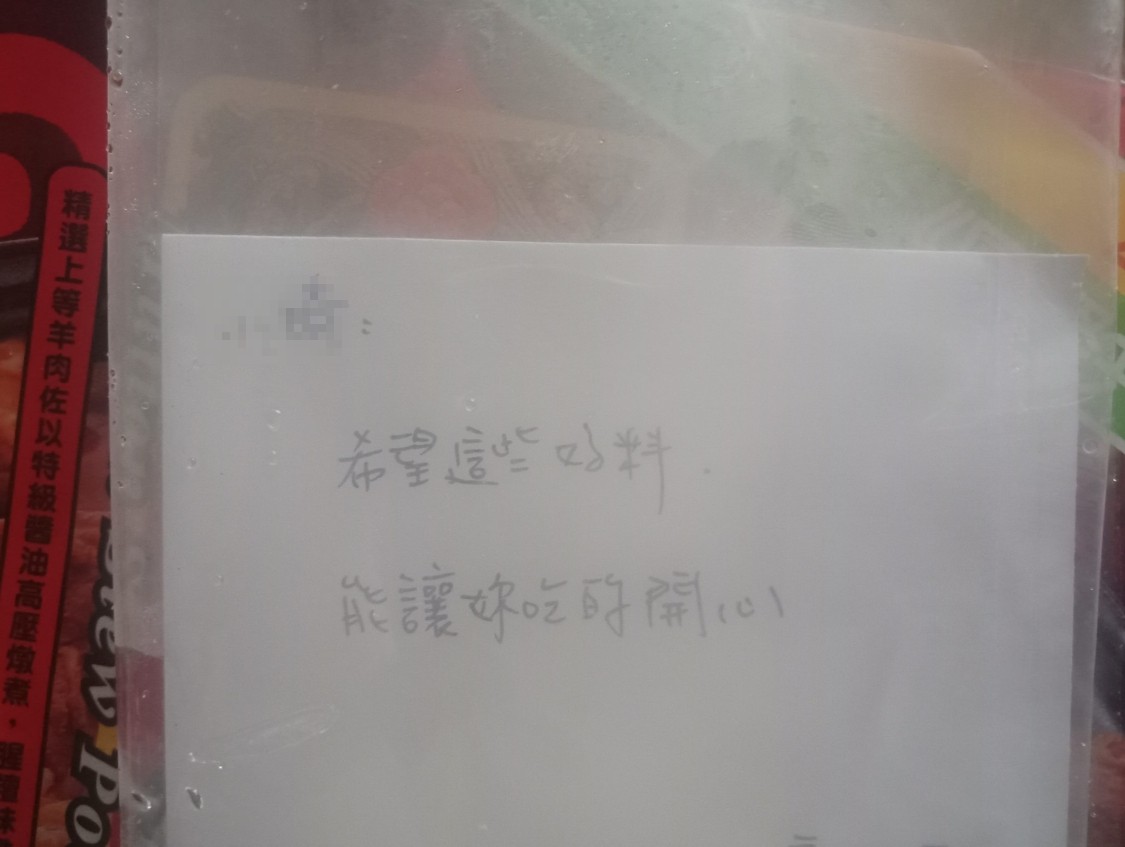 精選上等羊肉佐以特級醬油高壓燉煮，腥羶味
Stew Po
：
希望這些好料．
能讓妳吃的開心